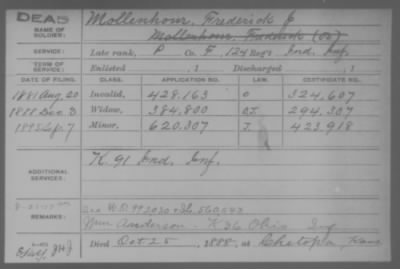 DEAD
NAME OF SOLDIER: Mollenhour, Frederick
Mollenhour, Fredrick
SERVICE: Late rank, P Co. F, 124 Reg't Ind. Inf.
TERM OF SERVICE: Enlisted , 1 Discharged , 1
DATE OF FILING. CLASS. APPLICATION NO. LAW. CERTIFICATE NO.
1881 Aug. 20 Invalid, 428.163 324,607
1888 Dec. 3 Widow, 384,800 294,307
Sep. 7 Minor, 620.307 423,918
ADDITIONAL SERVICES: K. 91 Ind. Inf.
REMARKS:
Wm Anderson. K 36 Ohio Inf
Died Oct 25, 1888, at Chetopa, Kans